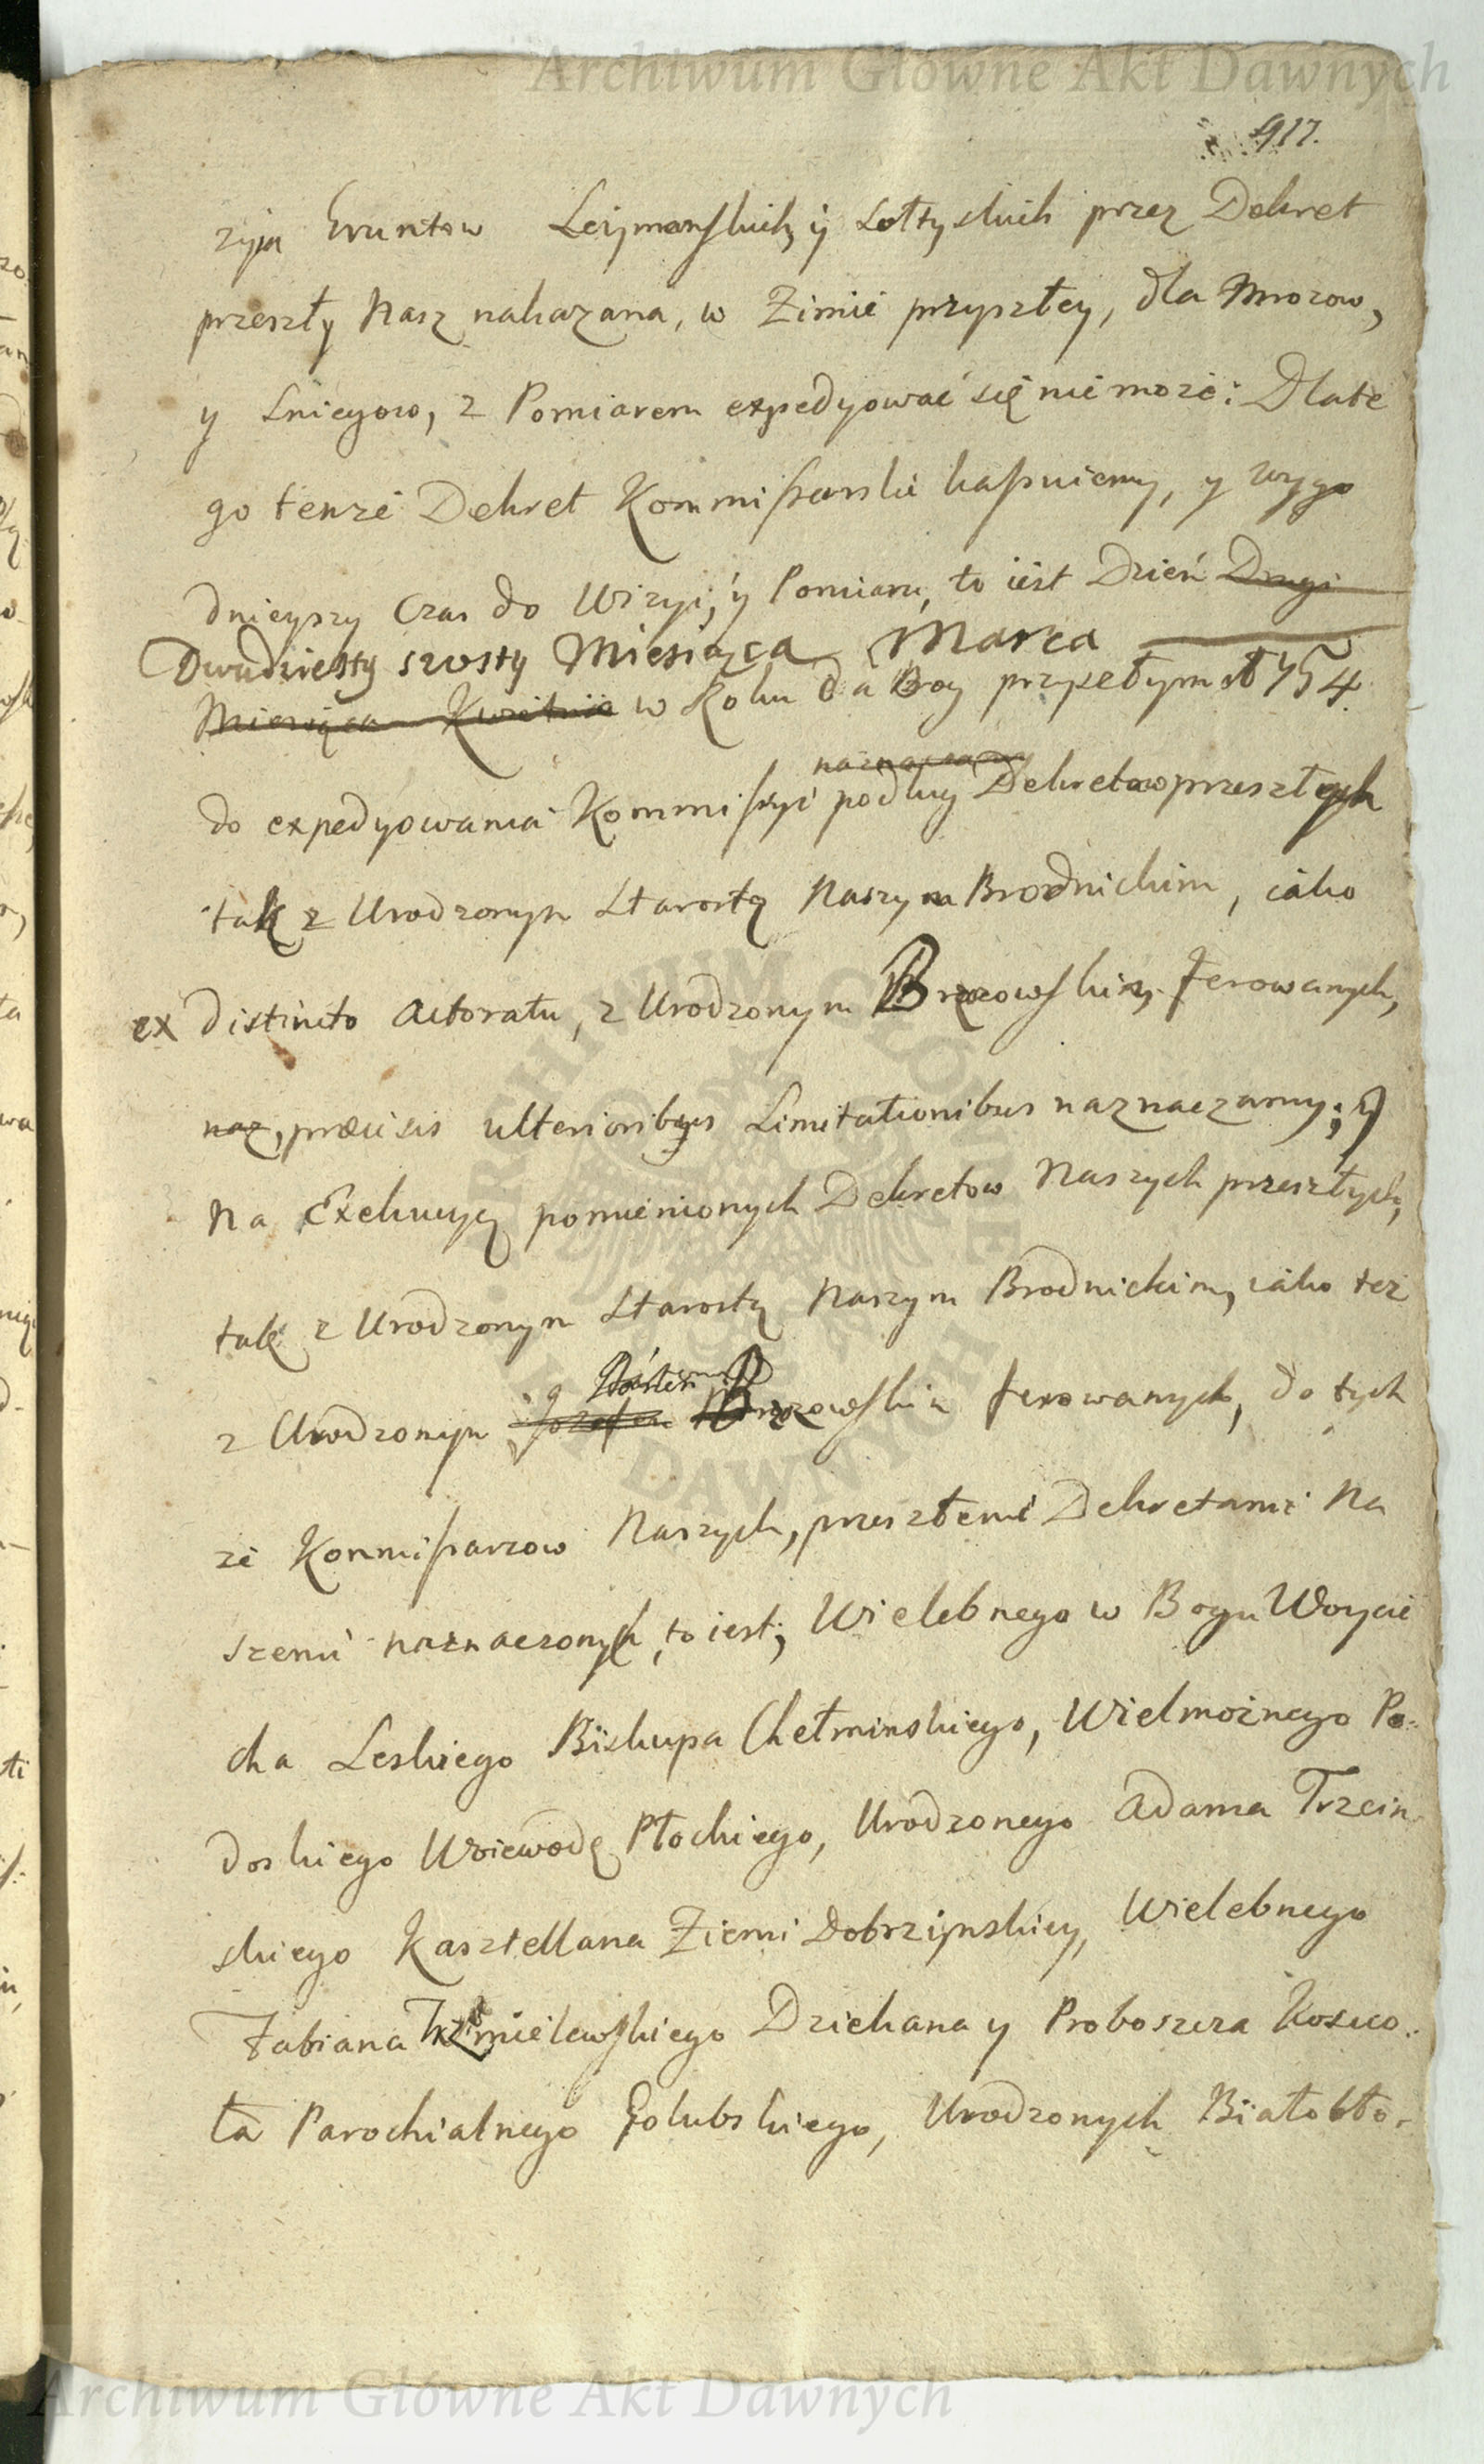 Archiwum Główne Akt Dawnych
917.
zyia Gruntow Leymanskich y Sołtyskich przez Dekret
przeszły Nasz nakazana, w Zimie przyszłey, dla Mrozow,
y Sniegow, z Pomiarem expedyować się nie może: Dlate
go tenże Dekret Kommissarski kassuiemy, y wygo
dnieyszy Czas do Wizyi, y Pomiaru, to iest Dzień Drugi
Dwudziesty szosty Miesiąca Marca
Miesiąca Kwietnia w Roku da Bog przyszłym 1754
naznaczamy
do expedyowania Kommissyi podług Dekretow przeszłych
tak z Urodzonym Starostą Naszym Brodnickim, iako
ex distincto Actoratu, z Urodzonym Brzozowskim ferowanych,
naz, præcisis ulterioribus Limitationibus naznaczamy; y
Na Exekucyą pomienionych Dekretow Naszych przeszłych,
tak z Urodzonym Starostą Naszym Brodnickim, iako też
z Urodzonym Jozefem Brzozowskim ferowanych, do tych
że Kommissarzow Naszych, przeszłemi Dekretami Na
szemi naznaczonych, to iest; Wielebnego w Bogu Woycie
cha Leskiego Biskupa Chełminskiego, Wielmożnego Po-
doskiego Woiewodę Płockiego, Urodzonego Adama Trzcin
skiego Kasztellana Ziemi Dobrzynskiey, Wielebnego
Fabiana Dziekana y Proboszcza Koscio-
ła Parochialnego Golubskiego, Urodzonych Białobło-
Archiwum Główne Akt Dawnych